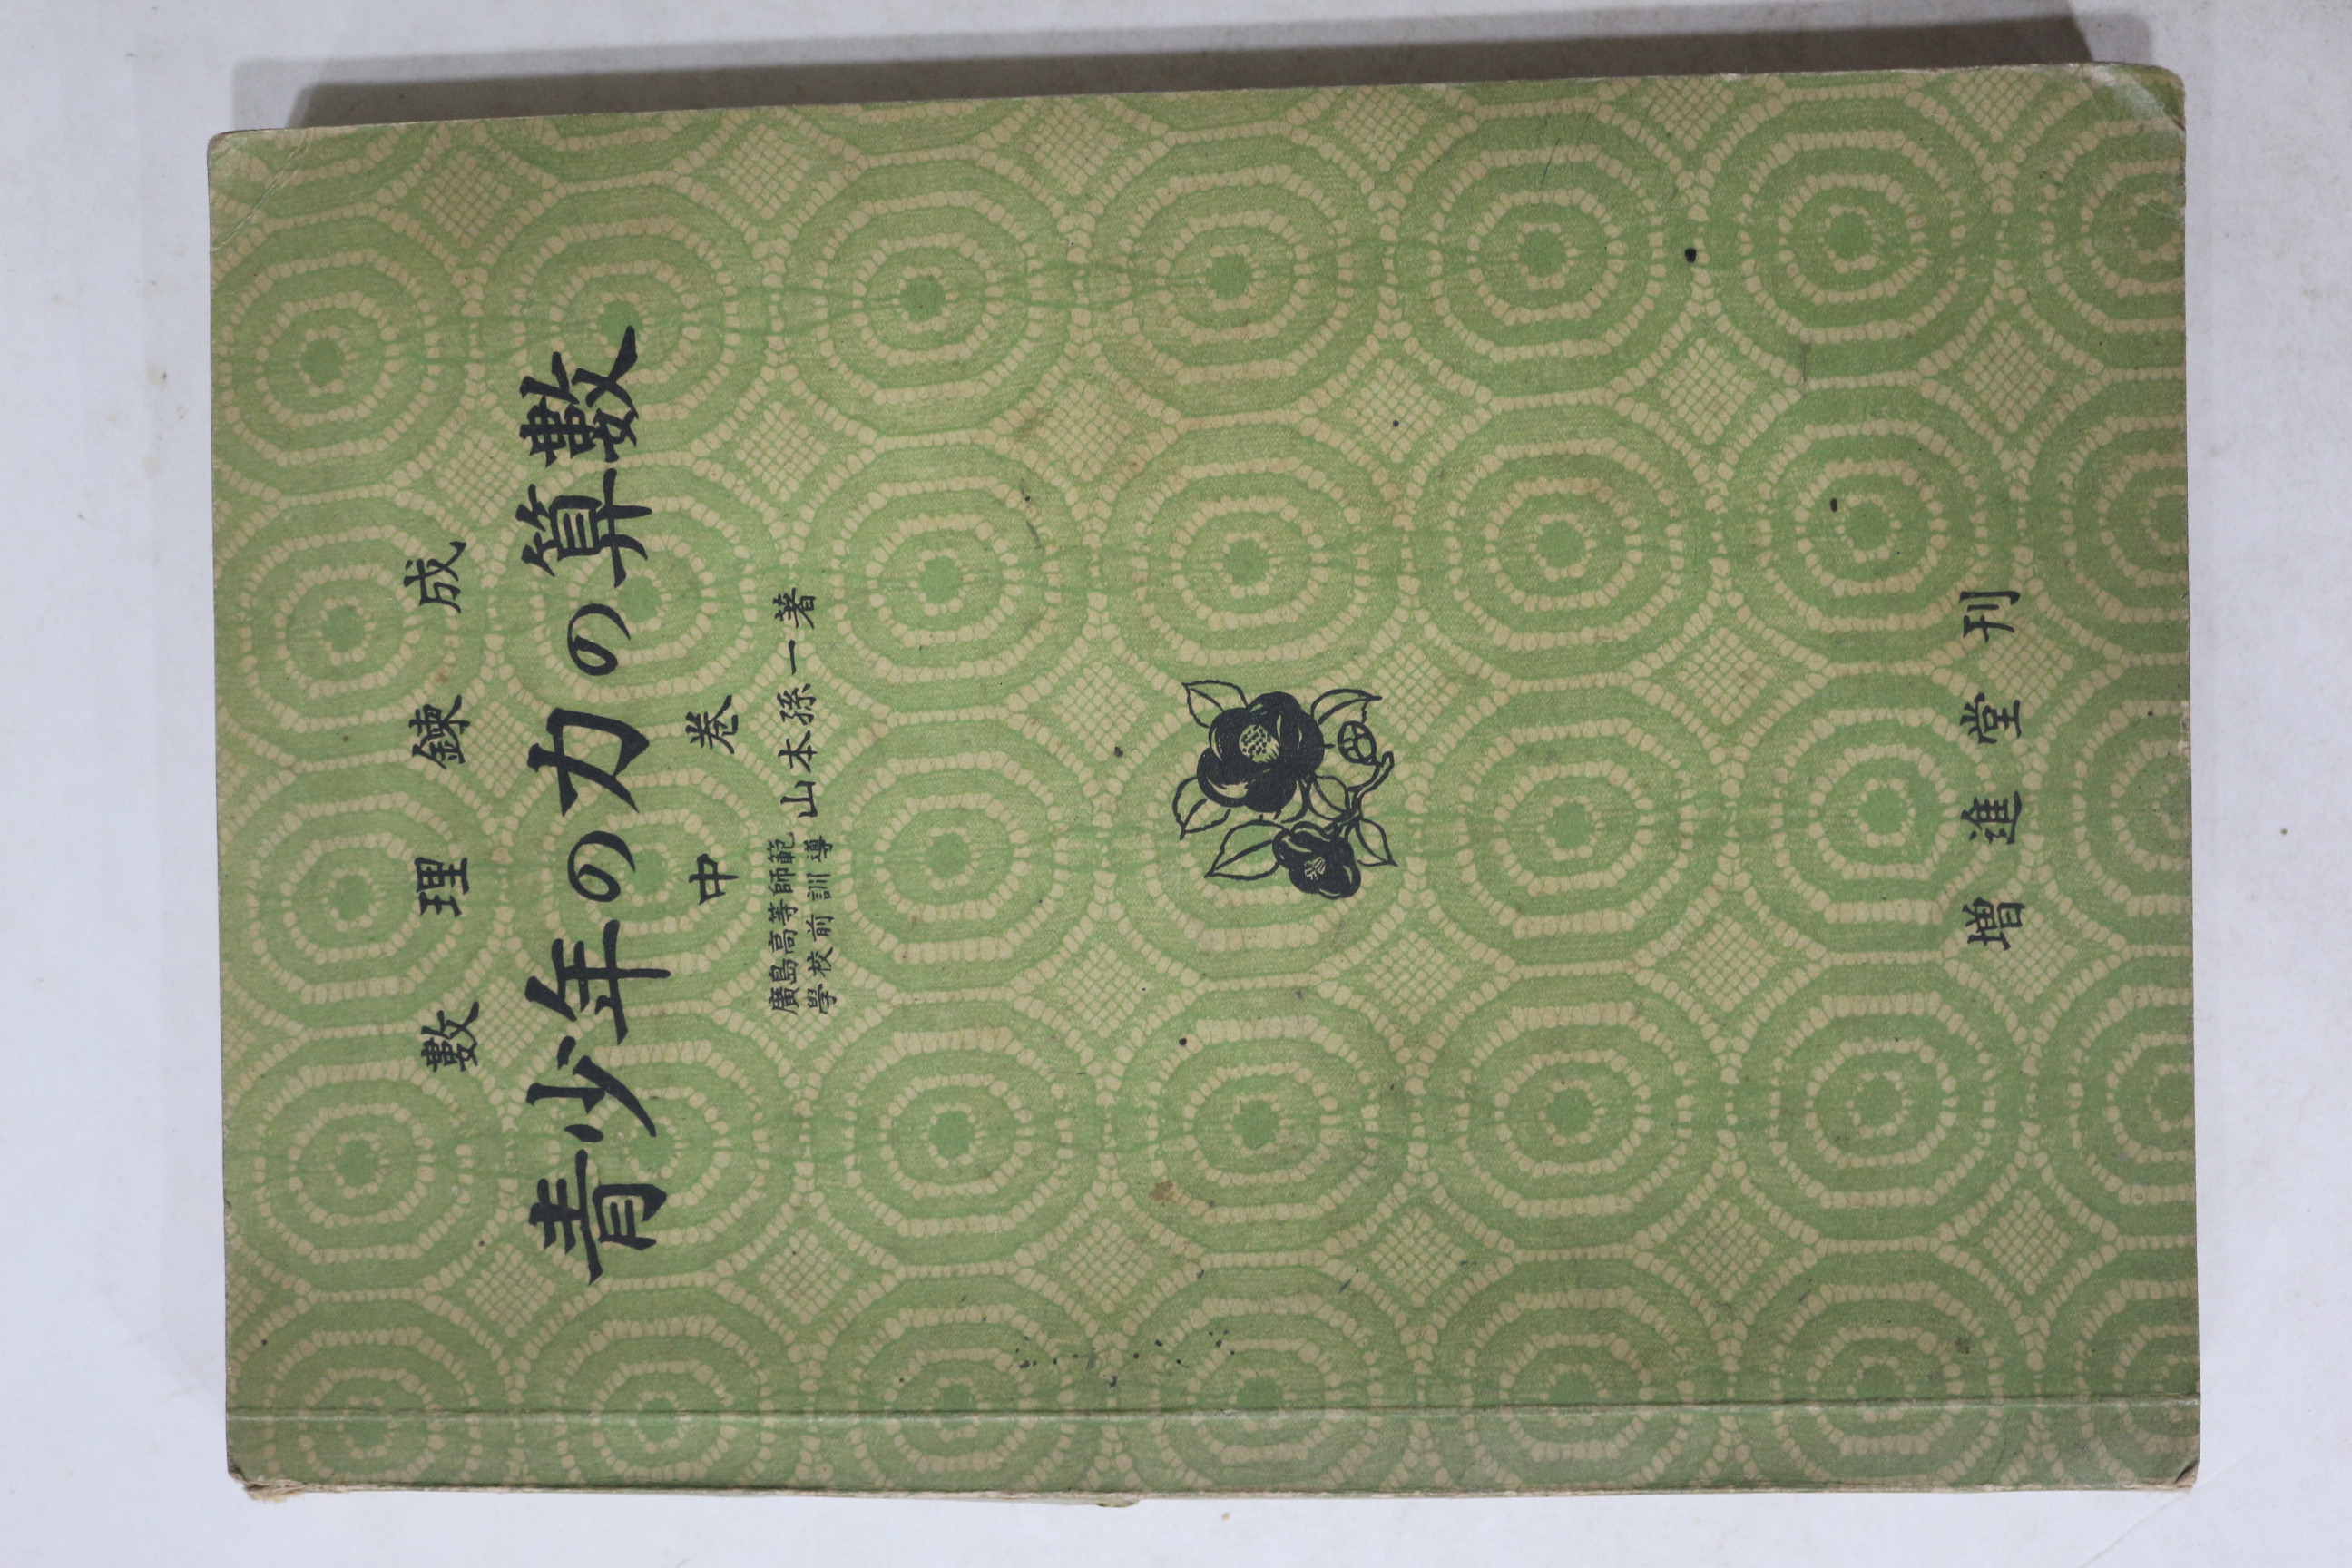 數理鍊成
青少年の力の算數
中卷
廣島高等師範
學校前訓導
山本孫一著
增進堂刊